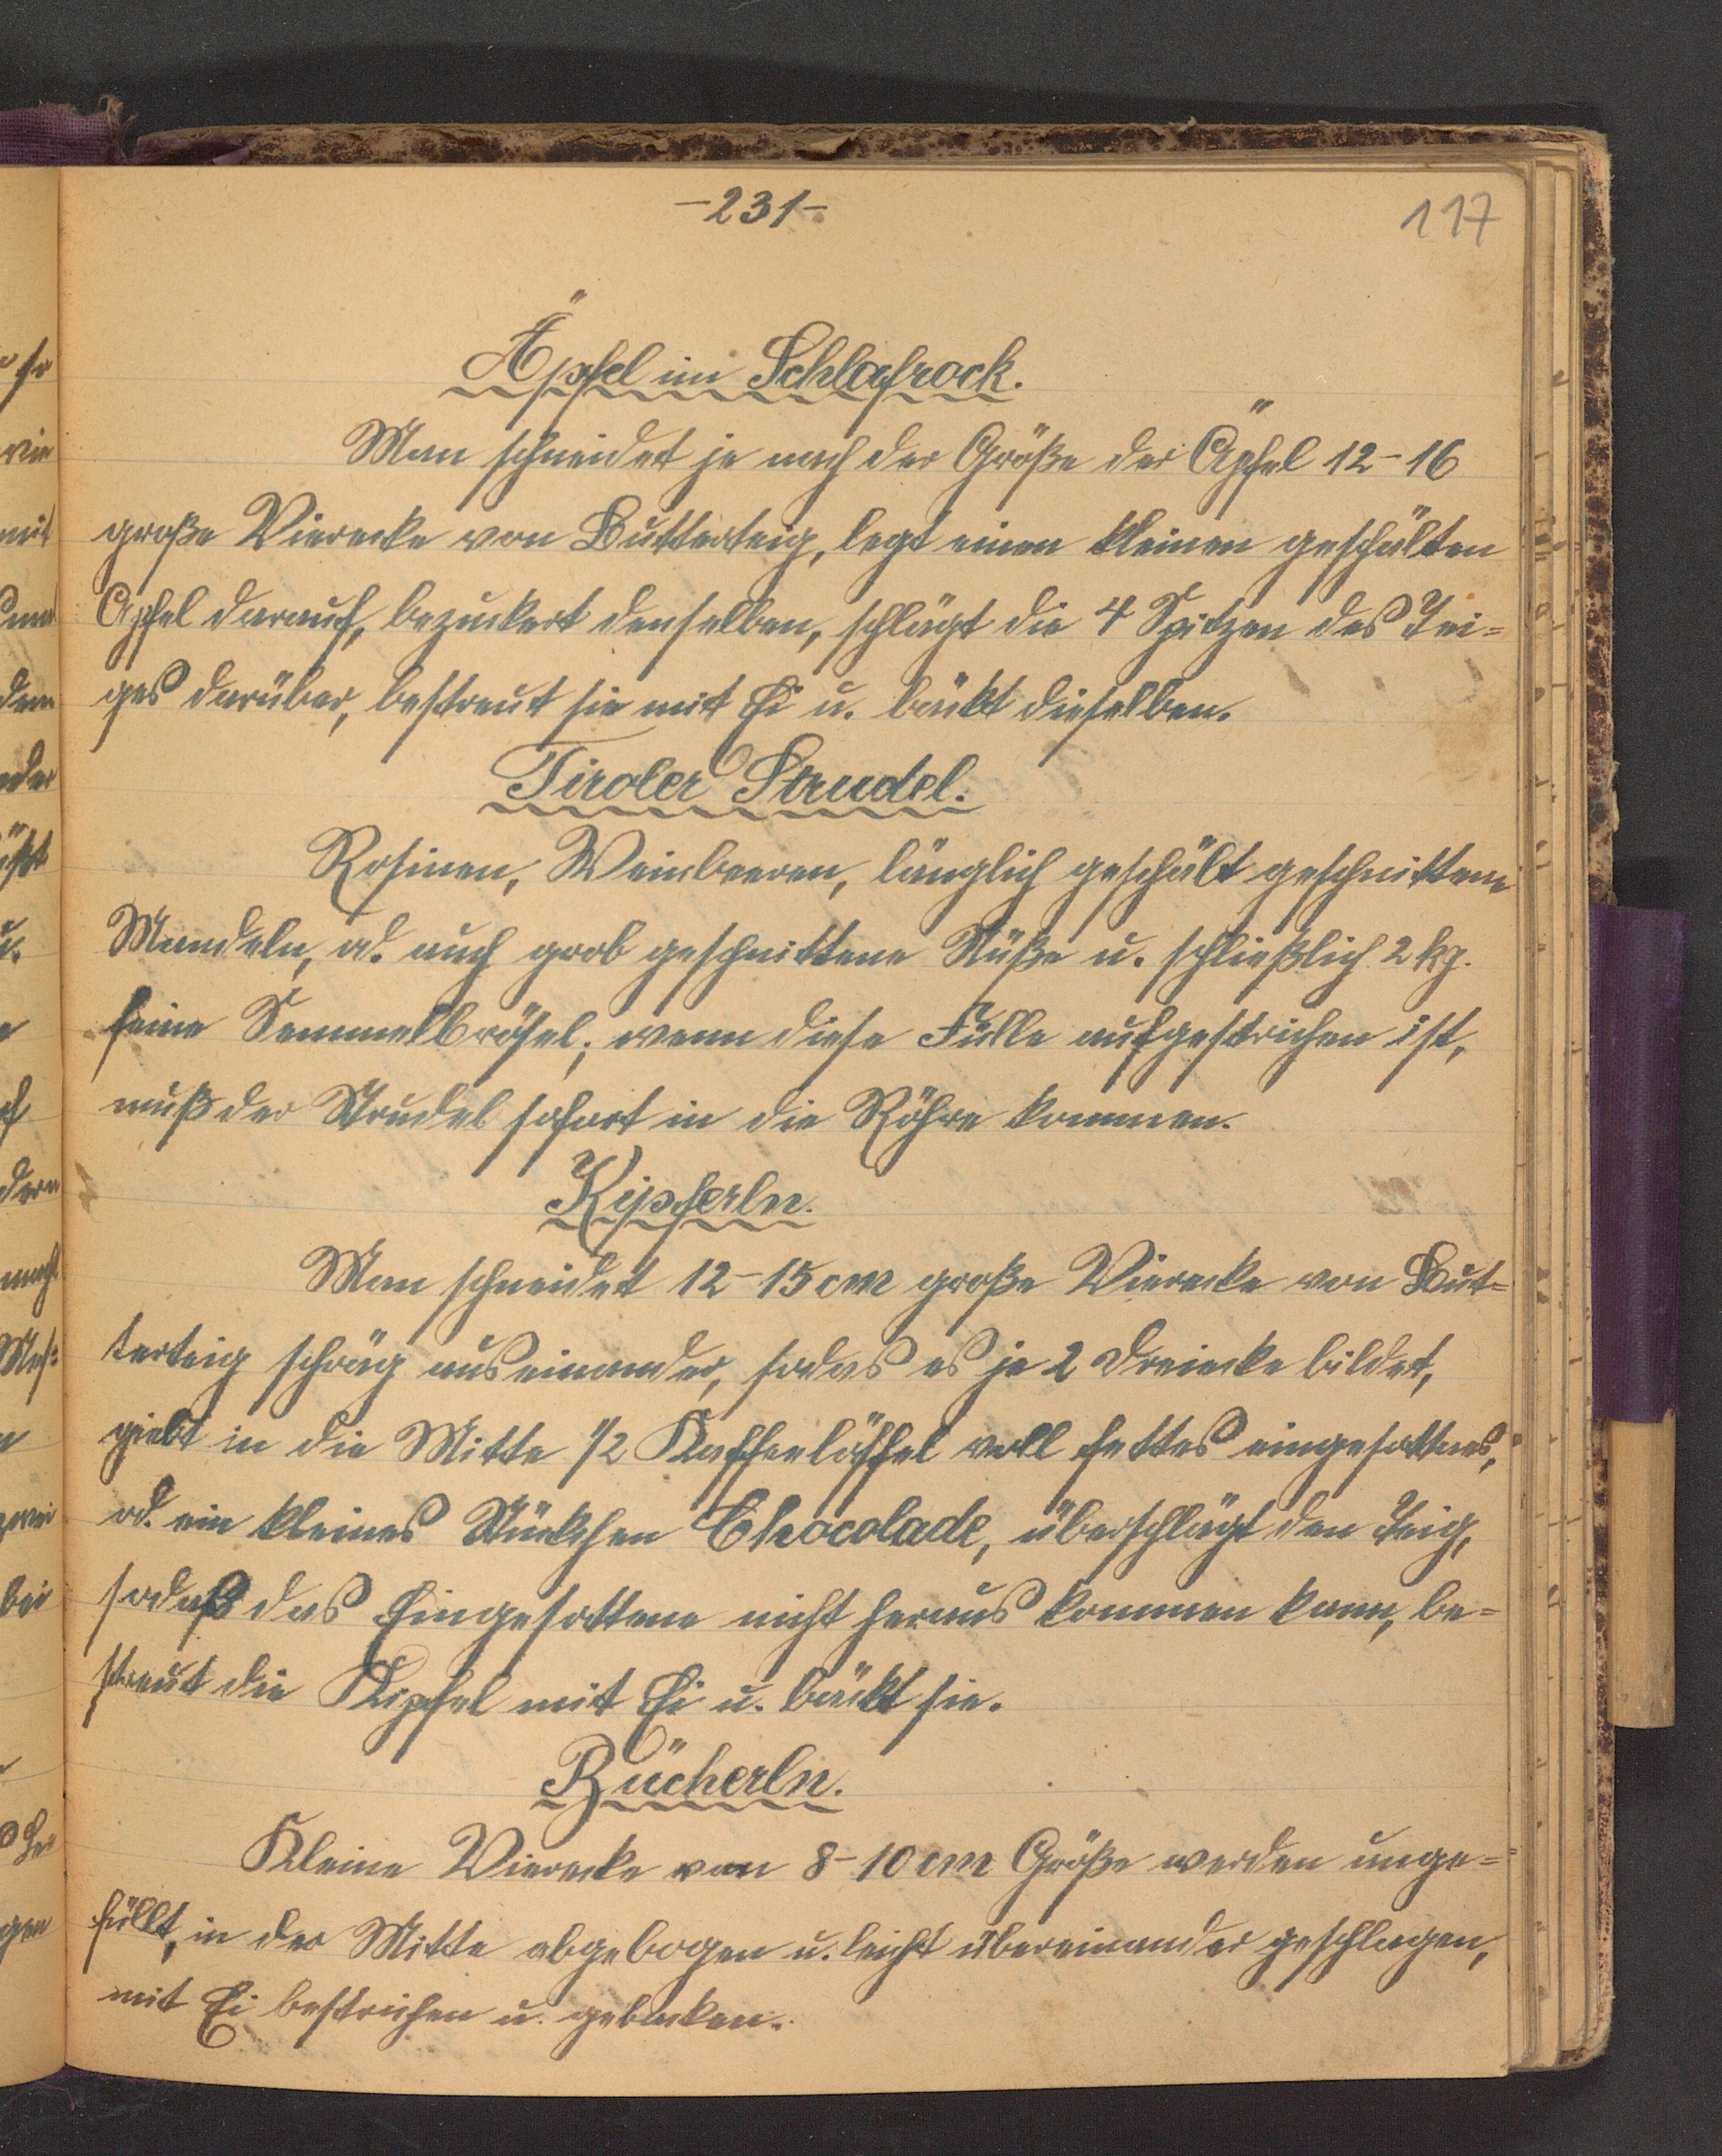 -231-
117
Äpfel im Schlafrock.
Man schneidet je nach der Größe der Äpfel 12-16
große Vierecke von Butterteig, legt einen kleinen geschälten
Apfel darauf, bezuckert denselben, schlägt die 4 Spitzen des Tei=
ges darüber, bestreut sie mit Ei u. bäckt dieselben.
Tiroler Strudel.
Rosinen, Weinbeeren, länglich geschält geschnittene
Mandeln, od. auch grob geschnittene Nüße u. schließlich 2 kg.
feine Semmelbrösel; wenn diese Fülle aufgestrichen ist,
muß der Strudel sofort in die Röhre kommen.
Kipferln.
Man schneidet 12-15 cm große Vierecke von But=
terteig schräg auseinander, sodas es je 2 Dreiecke bildet,
giebt in die Mitte 1/2 Kaffeelöffel voll fettes eingesottnes,
od. ein kleines Stückchen Chocolade, überschlägt den Teig,
sodaß das Eingesottene nicht heraus kommen kann, be=
streut die Kipfel mit Ei u. bäckt sie.
Bücherln.
Kleine Vierecke von 8-10 cm Größe werden unge=
füllt, in der Mitte abgebogen u. leicht übereinander geschlagen,
mit Ei bestrichen u. gebacken.